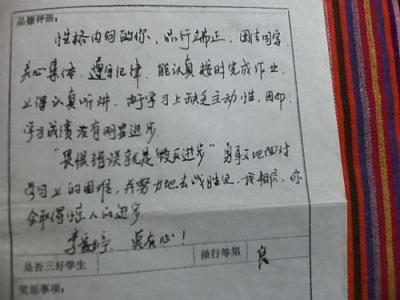 品德评语:
性格内向的你，品行端正，团结同学，
关心集体，遵守纪律，能认真按时完成作业，
上课认真听讲，由于学习上缺乏主动性，因而
学习成绩没有明显进步。
"畏惧错误就是毁灭进步"勇敢地面对
学习上的困难，并努力地去战胜它，我相信，你
会取得惊人的进步。
李 莫灰心！
是否三好学生
操行等第 良
奖惩事项: